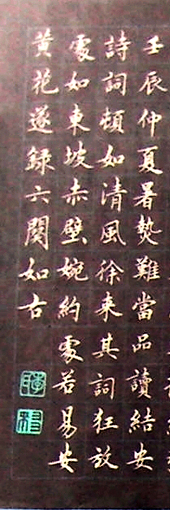 壬辰仲夏暑熱難當品讀結安
詩詞頓如清風徐来其詞狂放
處如東坡赤壁婉約處若易安
黄花遂録六闋如古